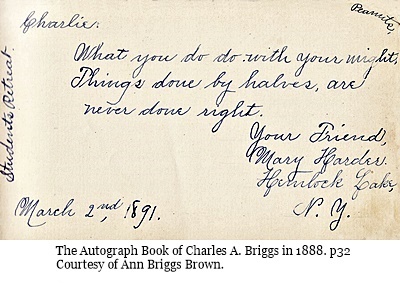 Charlie:
Peanuts,
What you do do with your might,
Things done by halves, are
never done right.
Your Friend,
Mary Harder.
Hemlock Lake,
N. Y.
March 2nd, 1891.
Students Retreat.
The Autograph Book of Charles A. Briggs in 1888. p32
Courtesy of Ann Briggs Brown.